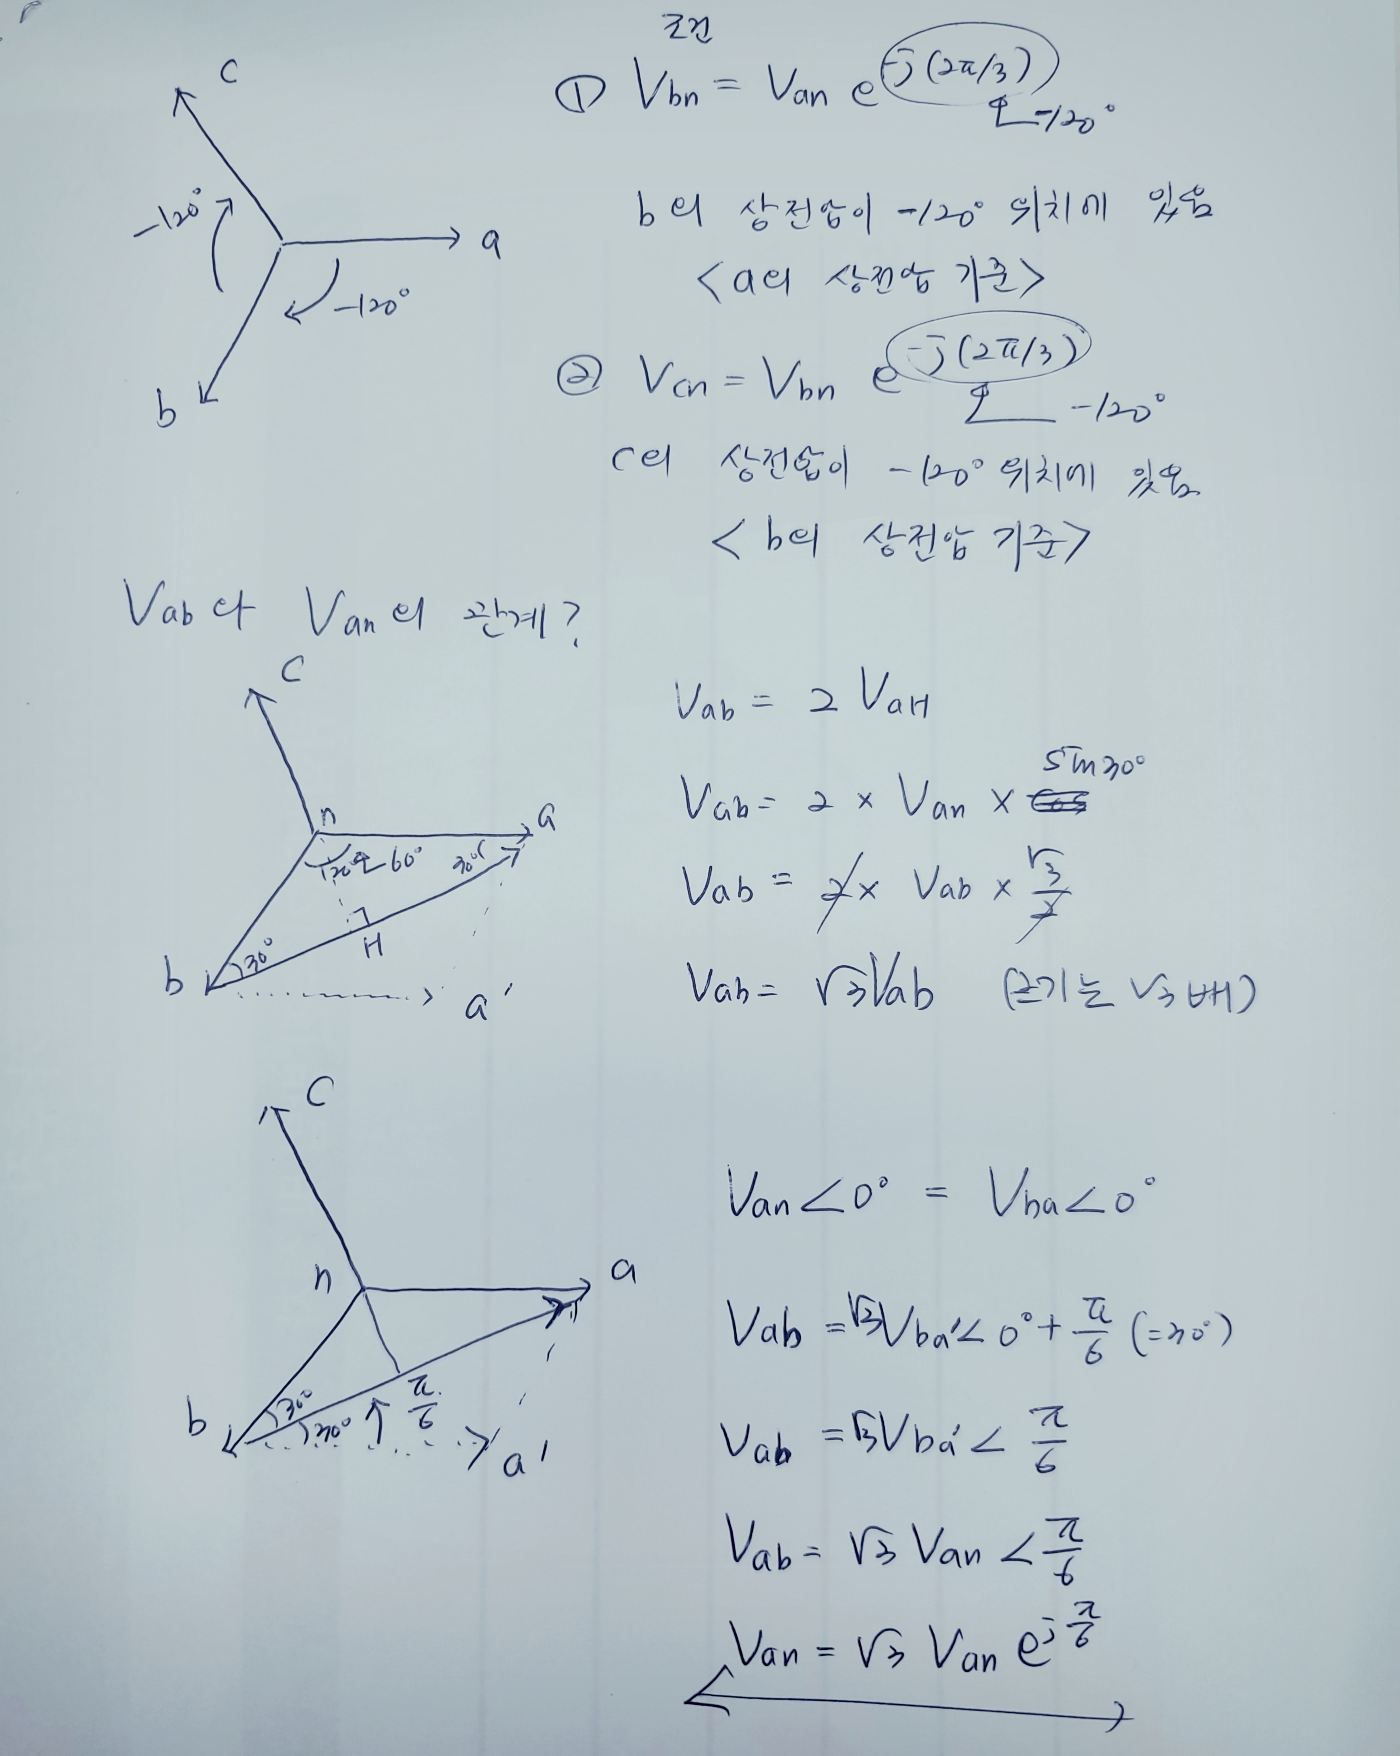 조건
① Vbn = Van e^-j(2π/3)
-120°
b의 상전압이 -120° 위치에 있음
<a의 상전압 기준>
② Vcn = Vbn e^-j(2π/3)
-120°
c의 상전압이 -120° 위치에 있음
<b의 상전압 기준>
c
-120°
a
-120°
b
Vab와 Van의 관계?
c
n
a
120°
60°
30°
30°
H
b
a'
Vab = 2 VaH
Vab = 2 × Van × sin30°
Vab = 2 × Vab × √3/2
Vab = √3Vab (크기는 √3배)
C
n
a
30°
30°
π/6
b
a'
Van∠0° = Vba∠0°
Vab = √3Vba'∠0°+π/6 (=30°)
Vab = √3Vba'∠π/6
Vab = √3 Van∠π/6
Van = √3 Van e^jπ/6